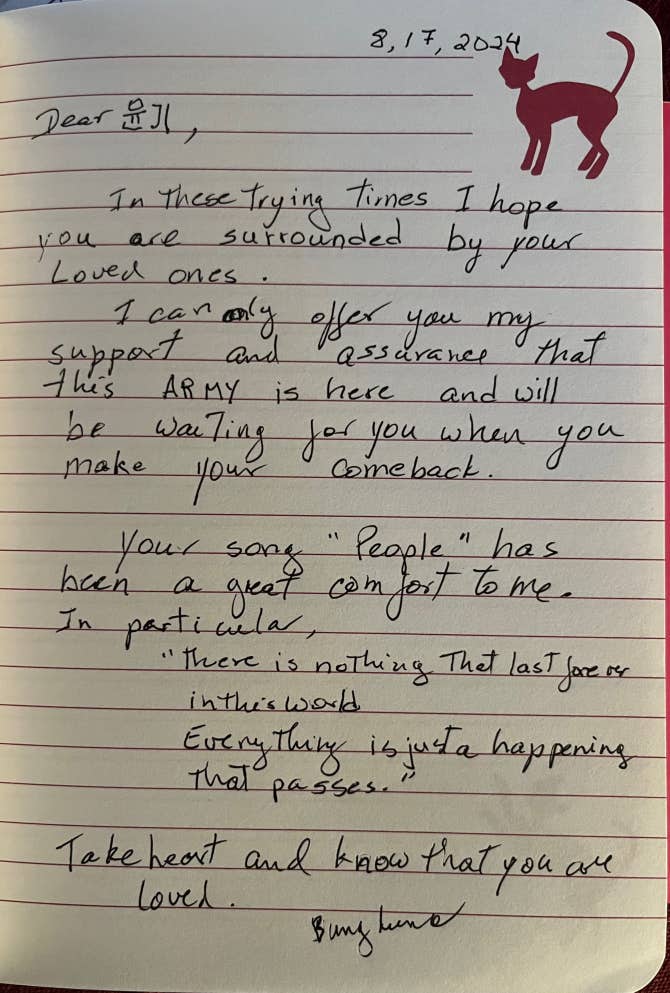 8, 17, 2024
Dear 윤기,
In these trying times I hope
you are surrounded by your
Loved ones.
I can only offer you my
support and assurance that
this ARMY is here and will
be waiting for you when you
make your comeback.
Your song "People" has
been a great comfort to me.
In particular,
"there is nothing That last forever
in this world
Everything is just a happening
that passes."
Take heart and know that you are
loved.